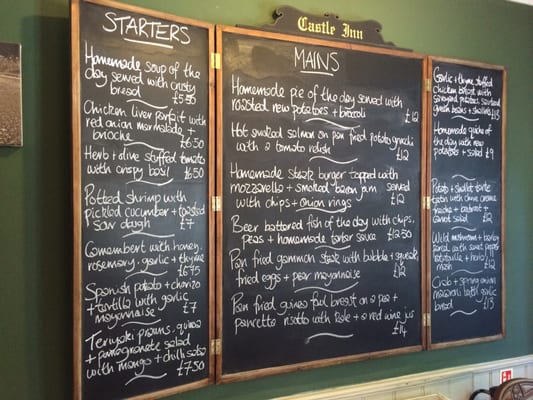 Castle Inn
STARTERS
Homemade soup of the
day served with crusty
bread
£5.50
Chicken liver parfait with
red onion marmalade +
brioche
£6.50
Herb + olive stuffed tomato
with crispy basil
£6.50
Potted shrimp with
pickled cucumber + toasted
sour dough
£7
Camembert with honey,
rosemary, garlic + thyme
£6.75
Spanish potato + chorizo
+ tortilla with garlic
mayonnaise
£7
Teriyaki prawns, quinoa
+ pomegranate salad
with mango + chilli salsa
£7.50
MAINS
Homemade pie of the day served with
roasted new potatoes + broccoli
£12
Hot smoked salmon on pan fried potato gnocchi
with a tomato relish
£12
Homemade steak burger topped with
mozzarella + smoked bacon jam served
with chips + onion rings
£12
Beer battered fish of the day with chips,
peas + homemade tartar sauce
£12.50
Pan fried gammon steak with bubble + squeak,
fried eggs + pear mayonnaise
£12
Pan fried guinea fowl breast on a pea +
pancetta risotto with kale + a red wine jus
£14
Garlic + thyme stuffed
chicken breast with
potatoes, sautéed
green beans + shallots
£13
Homemade quiche of
the day with new
potatoes + salad £9
Potato + shallot tarte
tatin with
+
salad £12
Wild mushroom + barley
with sweet
ratatouille + herb
£11
Crab + spring onion
macaroni with garlic
bread
£13